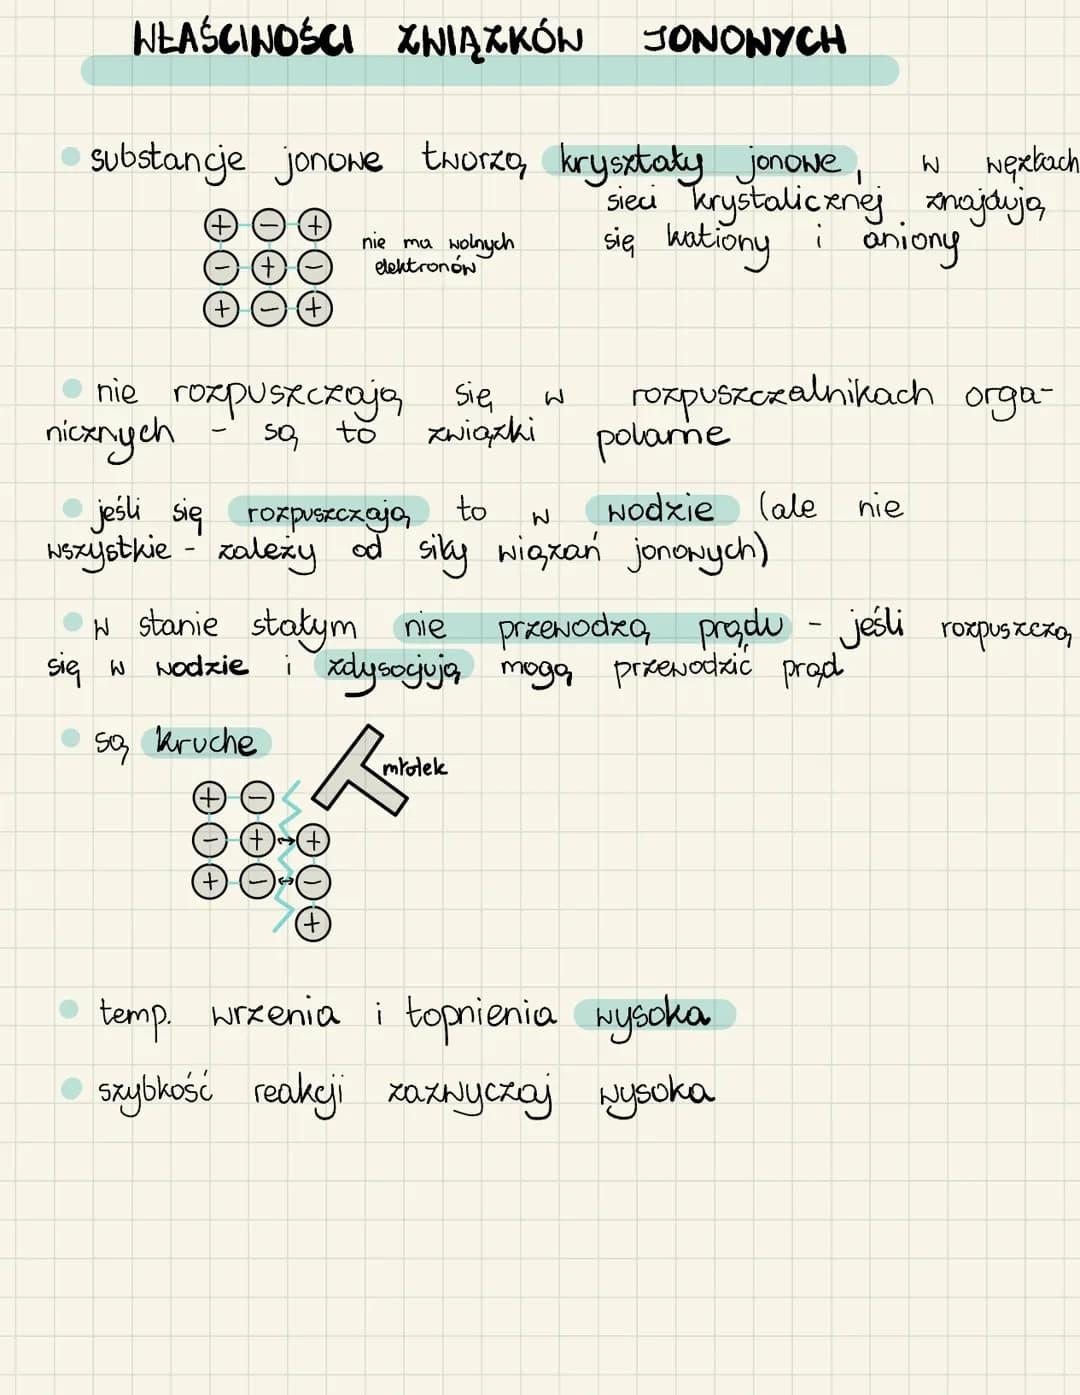 WŁAŚCIWOŚCI ZWIĄZKÓW JONOWYCH
substancje jonowe tworzą kryształy jonowe, w węzłach
sieci krystalicznej znajdują
się kationy i aniony
+ - +
- + -
+ - +
nie ma wolnych
elektronów
nie rozpuszczają się w rozpuszczalnikach orga-
nicznych - są to związki polarne
jeśli się rozpuszczają to w wodzie (ale nie
wszystkie - zależy od siły wiązań jonowych)
w stanie stałym nie przewodzą prądu - jeśli rozpuszczą
się w wodzie i zdysocjują mogą przewodzić prąd
są kruche
młotek
+ -
- + +
+ - -
+
temp. wrzenia i topnienia wysoka
szybkość reakcji zazwyczaj wysoka